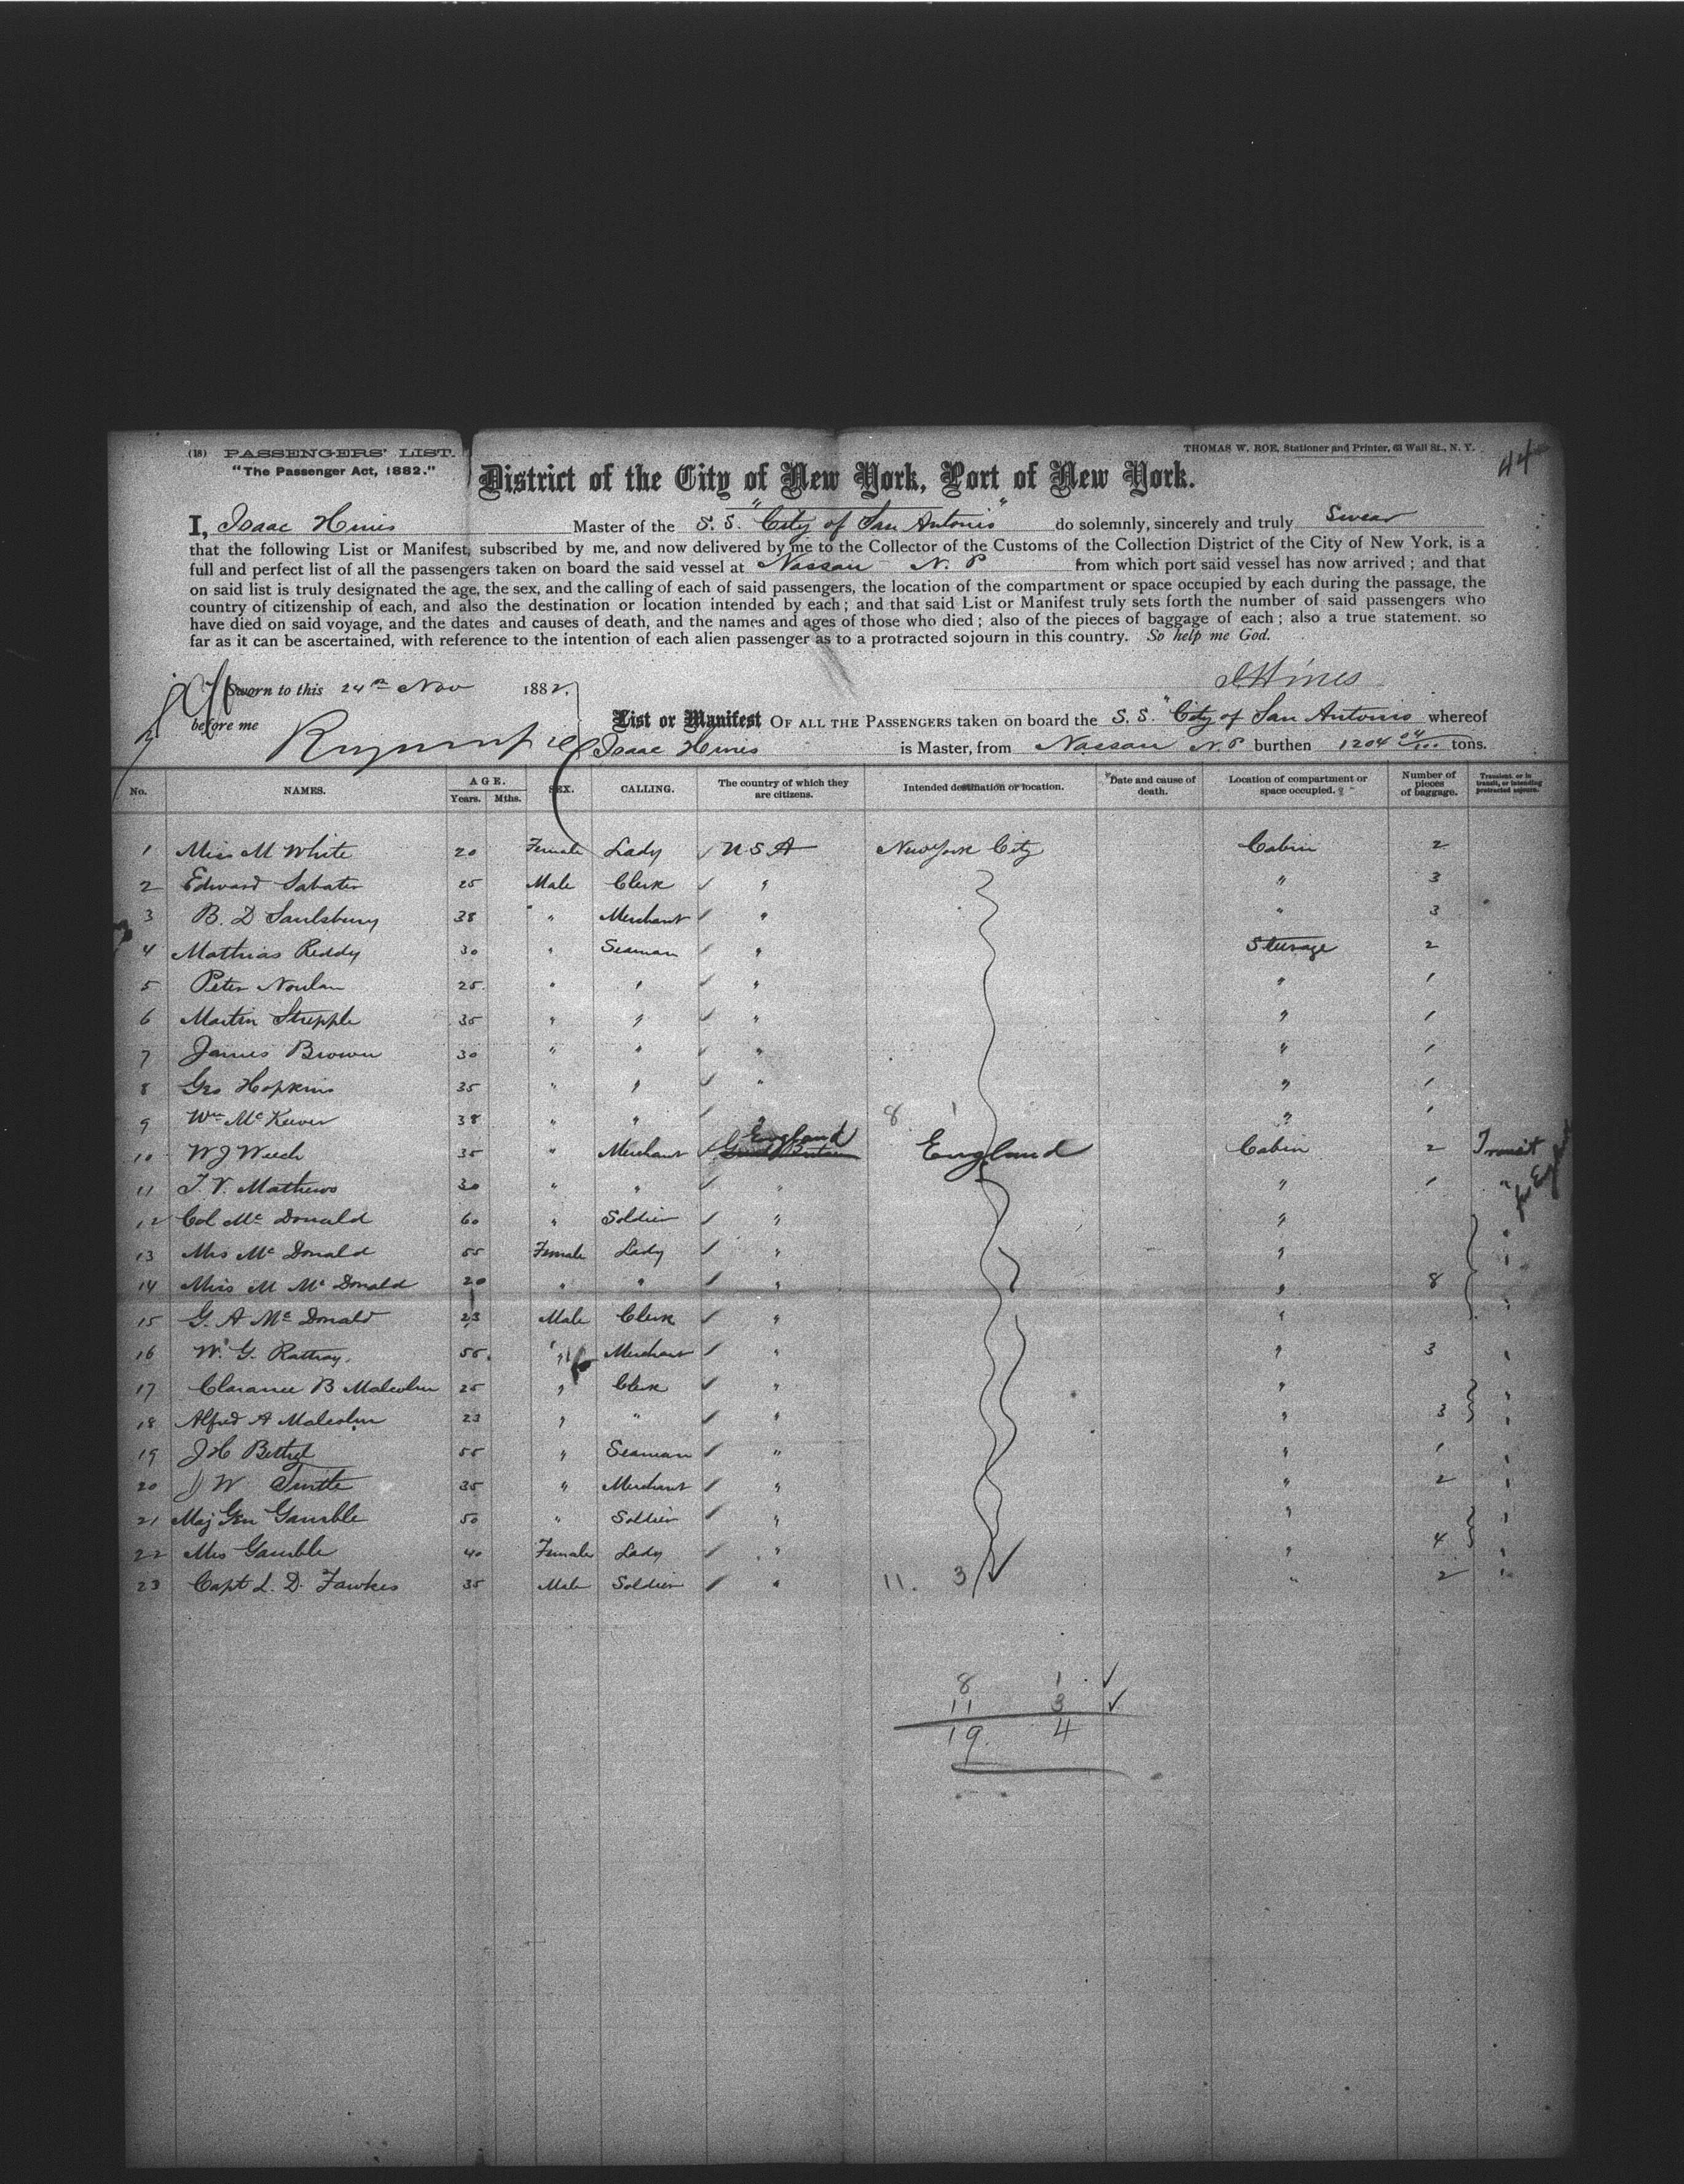 (18) PASSENGERS' LIST.
"The Passenger Act, 1882."
THOMAS W. ROE, Stationer and Printer, 63 Wall St., N. Y.
44
District of the City of New York, Port of New York.
I, Isaac Hines Master of the S. S. "City of San Antonio" do solemnly, sincerely and truly Swear
that the following List or Manifest, subscribed by me, and now delivered by me to the Collector of the Customs of the Collection District of the City of New York, is a
full and perfect list of all the passengers taken on board the said vessel at Nassau N. P from which port said vessel has now arrived; and that
on said list is truly designated the age, the sex, and the calling of each of said passengers, the location of the compartment or space occupied by each during the passage, the
country of citizenship of each, and also the destination or location intended by each; and that said List or Manifest truly sets forth the number of said passengers who
have died on said voyage, and the dates and causes of death, and the names and ages of those who died; also of the pieces of baggage of each; also a true statement. so
far as it can be ascertained, with reference to the intention of each alien passenger as to a protracted sojourn in this country. So help me God.
Sworn to this 24th Nov 1882, I Hines
before me
List or Manifest OF ALL THE PASSENGERS taken on board the S. S. "City of San Antonio whereof
Isaac Hines is Master, from Nassau N. P burthen 1204 04/100 tons.
No. NAMES. AGE. Years. Mths. SEX. CALLING. The country of which they are citizens. Intended destination or location. Date and cause of death. Location of compartment or space occupied. Number of pieces of baggage. Transient, or in transit, or intending protracted sojourn.
1 Miss M White 20 Female Lady U S A New York City Cabin 2
2 Edward Sabater 25 Male Clerk " " 3
3 B. D Saulsbury 38 " Merchant " " 3
4 Mathias Reddy 30 " Seaman " Steerage 2
5 Peter Noulan 25 " " " " 1
6 Martin Stripple 35 " " " " 1
7 James Brown 30 " " " " 1
8 Geo Hopkins 35 " " " " 1
9 Wm McKeever 38 " " " 8 1 " 1
10 W J Weech 35 " Merchant England Great Britain England Cabin 2 Transit for Eng
11 T. V. Mathews 30 " " " " 1 "
12 Col McDonald 60 " Soldier " " "
13 Mrs McDonald 55 Female Lady " " "
14 Miss M McDonald 20 " " " " 8
15 G. A McDonald 23 Male Clerk " " "
16 W. G. Rattray. 55. " Merchant " " 3 "
17 Clarance B Malcolm 25 " Clerk " " "
18 Alfred A Malcolm 23 " " " " 3 "
19 J H Bethel 55 " Seaman " " 1 "
20 J W Tuttle 35 " Merchant " " 2 "
21 Maj Gen Gamble 50 " Soldier " " "
22 Mrs Gamble 40 Female Lady " " 4 "
23 Capt L. D. Fawkes 35 Male Soldier " 11. 3 " 2 "
8 1
11 3
19 4